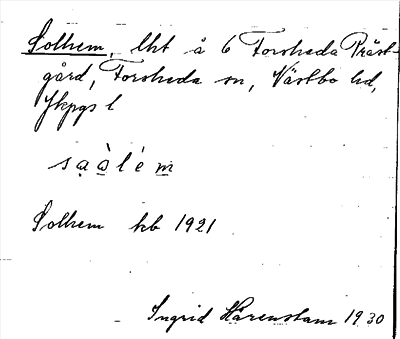 Solhem, lht å 6 Forsheda Präst-
gård, Forsheda sn, Västbo hd,
Jkpgs l
sa̤à̤lém̤
Solhem kb 1921
Ingrid Härenstam 1930